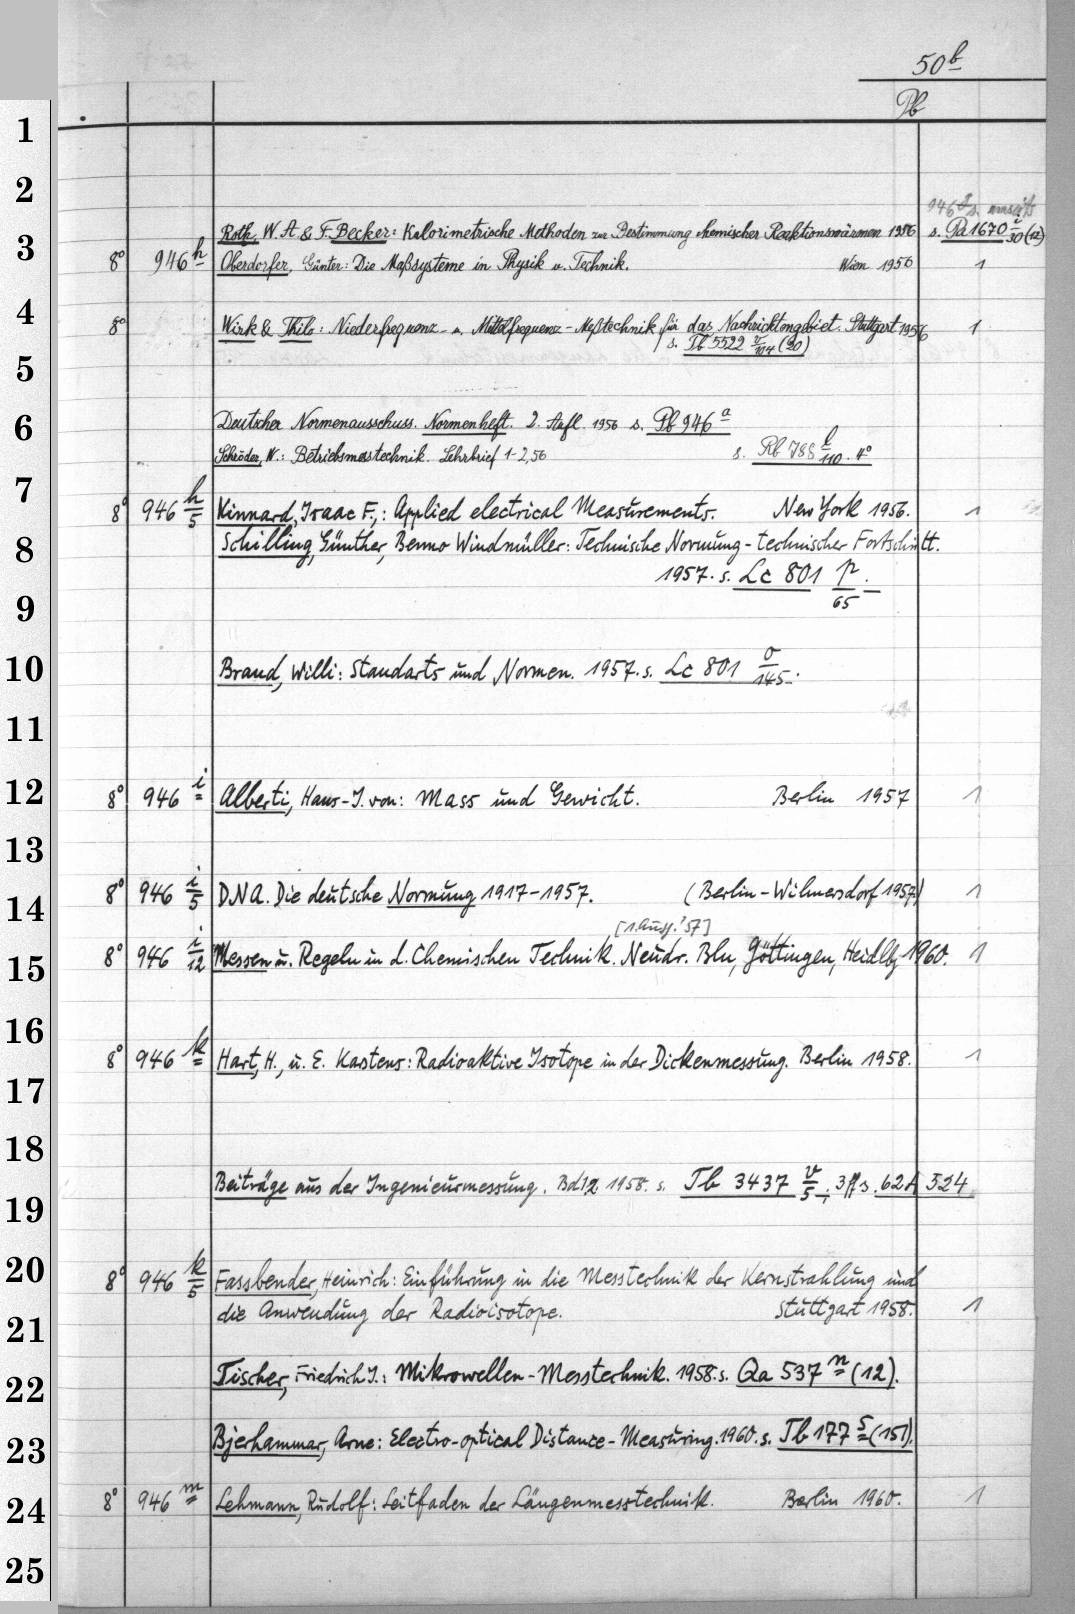 50 b
Pb
1
2
946 s.
Roth, W. A & F. Becker: Kalorimetrische Methoden zur Bestimmung chemischer Reaktionswärmen 1956 s. Pa 1670 i/30 (12)
3
8° 946 h Oberdorfer, Günter: Die Maßsysteme in Physik u. Technik. Wien 1956 1
4
8° Wirk & Thilo: Niederfrequenz- u. Mittelfrequenz-Meßtechnik für das Nachrichtengebiet. Stuttgart 1956 1
s. Tb 5522 v/104 (20)
5
6
Deutscher Normenausschuss. Normenheft. 2. Aufl. 1956 s. Pb 946 a
Schröder, W.: Betriebsmesstechnik. Lehrbrief 1-2, 56 s. Rb 788 l/110. 4°
7
8° 946 h/5 Kinnard, Isaac F.,: Applied electrical Measurements. New York 1956. 1
8
Schilling, Günther, Benno Windmüller: Technische Normung - technischer Fortschritt.
1957. s. Lc 801 p/65.
9
10
Brand, Willi: Standarts und Normen. 1957. s. Lc 801 o/145.
11
12
8° 946 i Alberti, Hans-J. von: Mass und Gewicht. Berlin 1957 1
13
14
8° 946 i/5 DNA. Die deutsche Normung 1917-1957. (Berlin-Wilmersdorf 1957) 1
[1. Ausg. '57]
15
8° 946 i/12 Messen u. Regeln in d. Chemischen Technik. Neudr. Bln, Göttingen, Heidlbg 1960. 1
16
8° 946 k Hart, H., u. E. Karstens: Radioaktive Isotope in der Dickenmessung. Berlin 1958. 1
17
18
Beiträge aus der Ingenieurmessung. Bd 1,2 1958. s. Tb 3437 v/5; 3 ff s. 62 A 524
19
20
8° 946 k/5 Fassbender, Heinrich: Einführung in die Messtechnik der Kernstrahlung und
die Anwendung der Radioisotope. Stuttgart 1958. 1
21
22
Fischer, Friedrich J.: Mikrowellen-Messtechnik. 1958. s. Qa 537 n (12).
23
Bjerhammar, Arne: Electro-optical Distance-Measuring. 1960. s. Tb 177 s (151).
24
8° 946 m Lehmann, Rudolf: Leitfaden der Längenmesstechnik. Berlin 1960. 1
25